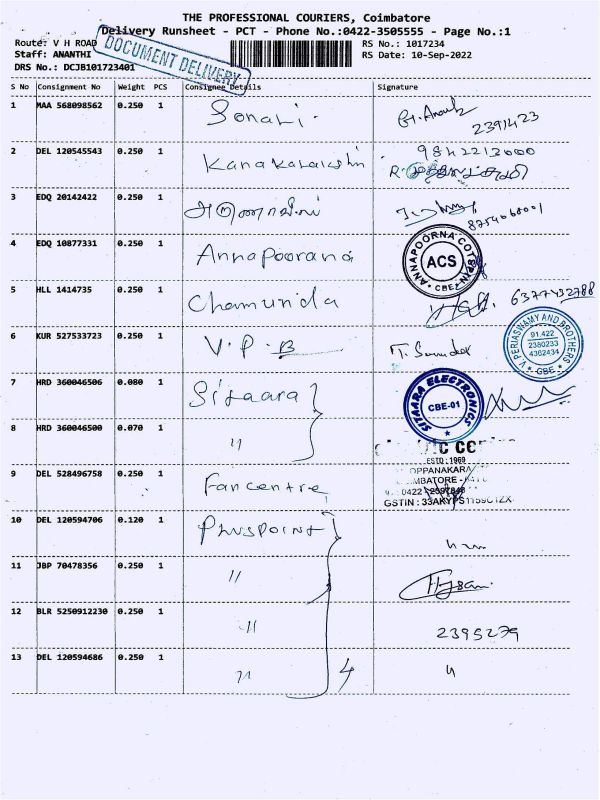 THE PROFESSIONAL COURIERS, Coimbatore
Delivery Runsheet - PCT - Phone No.:0422-3505555 - Page No.:1
Route: V H ROAD RS No.: 1017234
Staff: ANANTHI RS Date: 10-Sep-2022
DRS No.: DCJB101723401
DOCUMENT DELIVERY
S No Consignment No Weight PCS Consignee Details Signature
1 MAA 568098562 0.250 1 Sonali.
2391423
2 DEL 120545543 0.250 1 9842213000
3 EDQ 20142422 0.250 1
4 EDQ 10877331 0.250 1 Annapoorana
ANNAPOORNA COTSPIN
ACS
CBE
5 HLL 1414735 0.250 1 Chamunda 6377432788
6 KUR 527533723 0.250 1 V.P.B
V PERIASWAMY AND BROTHERS
91.422
2380233
4362434
CBE
7 HRD 360046506 0.080 1 Sitaara
SITAARA ELECTRONICS
CBE-01
8 HRD 360046500 0.070 1 "
ESTD : 1969
OPPANAKARA
9 DEL 528496758 0.250 1 Fancentre
0422
GSTIN : 33AKYPS1159C1ZX
10 DEL 120594706 0.120 1 Pluspoint
11 JBP 70478356 0.250 1 "
12 BLR 5250912230 0.250 1 " 2395279
13 DEL 120594686 0.250 1 " 4